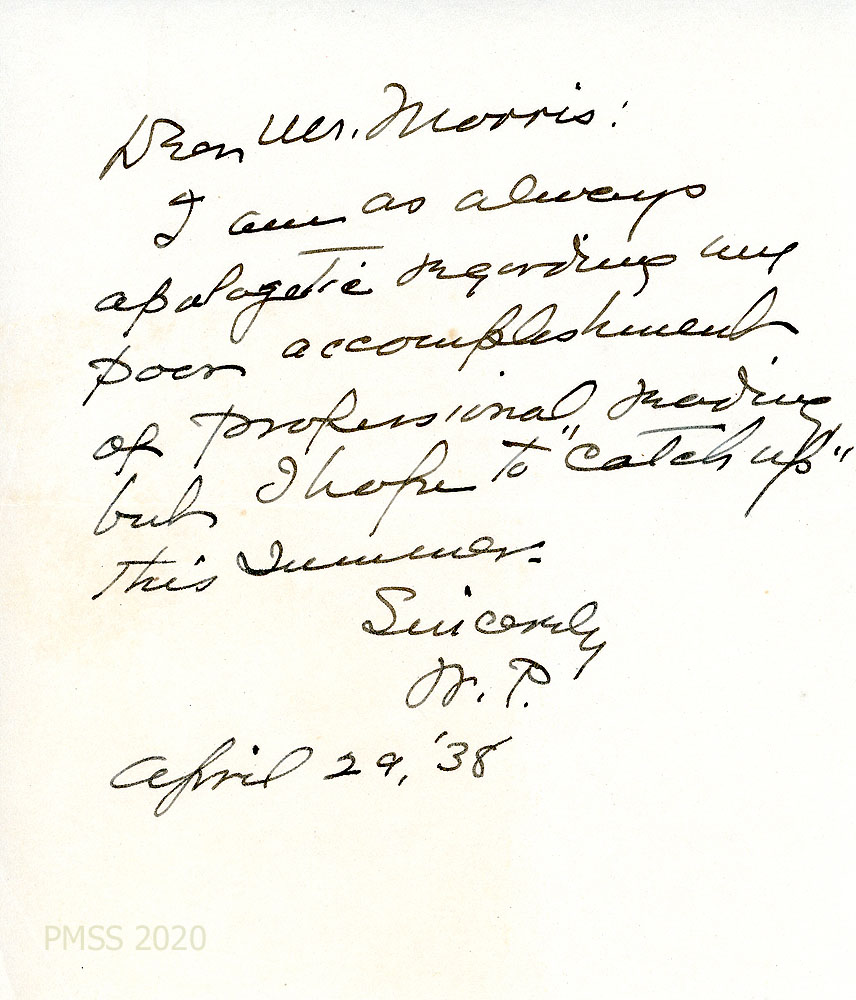 Dear Mr. Morris:
I am as always
apologetic regarding my
poor accomplishment
of professional reading
but I hope to "catch up"
this summer.
Sincerely
W. P.
April 29, '38
PMSS 2020